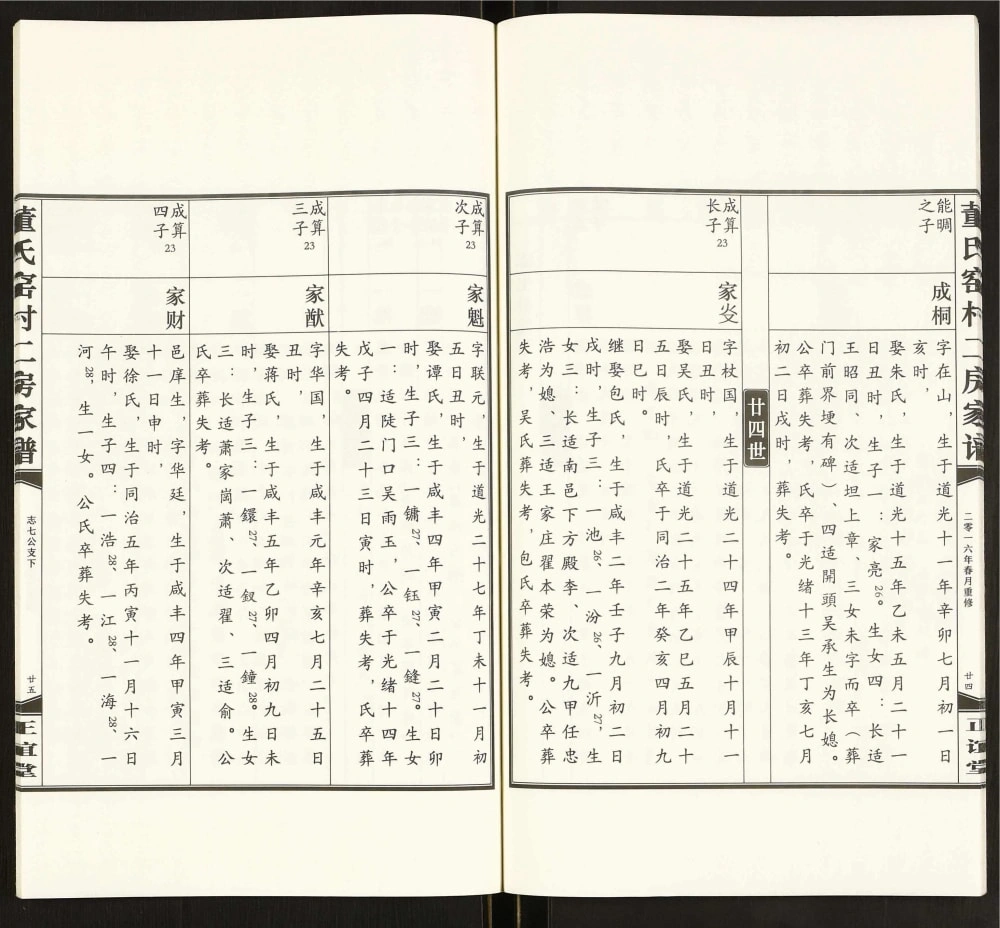 董氏窑村二房家谱
二零一六年春月重修
廿四
正谊堂
能啁
之子
成桐
字在山，生于道光十一年辛卯七月初一日
亥时，
娶朱氏，生于道光十五年乙未五月二十一
日丑时，生子一：家亮26。生女四：长适
王昭同、次适坦上章、三女未字而卒（葬
门前界埂有碑）、四适開頭吴承生为长媳。
公卒葬失考，氏卒于光绪十三年丁亥七月
初二日戌时，葬失考。
廿四世
成算23
长子
家炎
字杖国，生于道光二十四年甲辰十月十一
日丑时
娶吴氏，生于道光二十五年乙巳五月二十
五日辰时，氏卒于同治二年癸亥四月初九
日巳时。
继娶包氏，生于咸丰二年壬子九月初二日
戌时，生子三：一池26、一汾26、一沂27，生
女三：长适南邑下方殿李、次适九甲任忠
浩为媳、三适王家庄翟本荣为媳。公卒葬
失考，吴氏葬失考，包氏卒葬失考。
成算23
次子
家魁
字联元，生于道光二十七年丁未十一月初
五日丑时，
娶谭氏，生于咸丰四年甲寅二月二十日卯
时，生子三：一镛27、一钰27、一鏠27。生女
一：适陡门口吴雨玉，公卒于光绪十四年
戊子四月二十三日寅时，葬失考，氏卒葬
失考。
成算23
三子
家猷
字华国，生于咸丰元年辛亥七月二十五日
丑时，
娶蒋氏，生于咸丰五年乙卯四月初九日未
时，生子三：一鐶27、一釵27、一鐘28。生女
三：长适萧家崗萧、次适翟、三适俞。公
氏卒葬失考。
成算23
四子
家财
邑庠生，字华廷，生于咸丰四年甲寅三月
十一日申时，
娶徐氏，生于同治五年丙寅十一月十六日
午时，生子四：一浩28、一江28、一海28、一
河28，生一女。公氏卒葬失考。
董氏窑村二房家谱
志七公支下
廿五
正谊堂